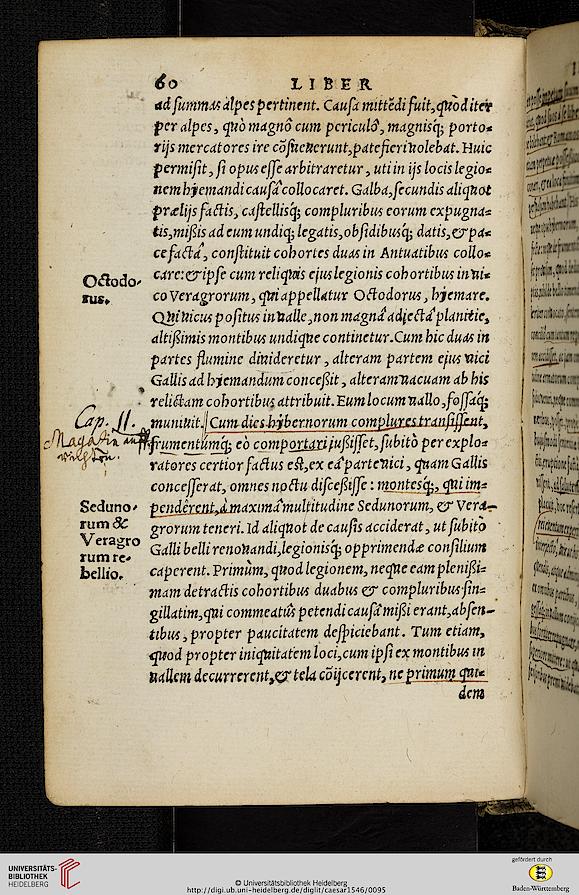 60 LIBER
ad summas alpes pertinent. Causa mittēdi fuit, quòd iter
per alpes, quò magnô cum periculô, magnisq; porto=
rijs mercatores ire cōsueuerunt, patefieri uolebat. Huic
permisit, si opus esse arbitraretur, uti in ijs locis legio=
nem hyemandi causâ collocaret. Galba, secundis aliquot
prælijs factis, castellisq; compluribus eorum expugna=
tis, missis ad eum undiq; legatis, obsidibusq; datis, & pa=
ce factâ, constituit cohortes duas in Antuatibus collo=
care: & ipse cum reliquis ejus legionis cohortibus in ui=
co Veragrorum, qui appellatur Octodorus, hyemare.
Qui uicus positus in ualle, non magnâ adjectâ planitie,
altissimis montibus undique continetur. Cum hic duas in
partes flumine diuideretur, alteram partem ejus uici
Gallis ad hyemandum concessit, alteram uacuam ab his
relictam cohortibus attribuit. Eum locum uallo, fossaq;
muniuit. Cum dies hybernorum complures transissent,
frumentúmq; eò comportari jussisset, subitò per explo=
ratores certior factus est, ex eâ parte uici, quam Gallis
concesserat, omnes noctu discessisse: montesq;, qui im=
pendêrent, à maximâ multitudine Sedunorum, & Vera=
grorum teneri. Id aliquot de causis acciderat, ut subitò
Galli belli renouandi, legionisq; opprimendæ consilium
caperent. Primùm, quod legionem, neque eam plenissi=
mam detractis cohortibus duabus & compluribus sin=
gillatim, qui commeatûs petendi causâ missi erant, absen=
tibus, propter paucitatem despiciebant. Tum etiam,
quod propter iniquitatem loci, cum ipsi ex montibus in
uallem decurrerent, & tela cōijcerent, ne primum qui=
dem
Octodo-
rus.
Cap. II.
Magatin auff
Seduno-
rum &
Veragro
rum re-
bellio.
UNIVERSITÄTS-
BIBLIOTHEK
HEIDELBERG
© Universitätsbibliothek Heidelberg
http://digi.ub.uni-heidelberg.de/diglit/caesar1546/0095
gefördert durch
Baden-Württemberg